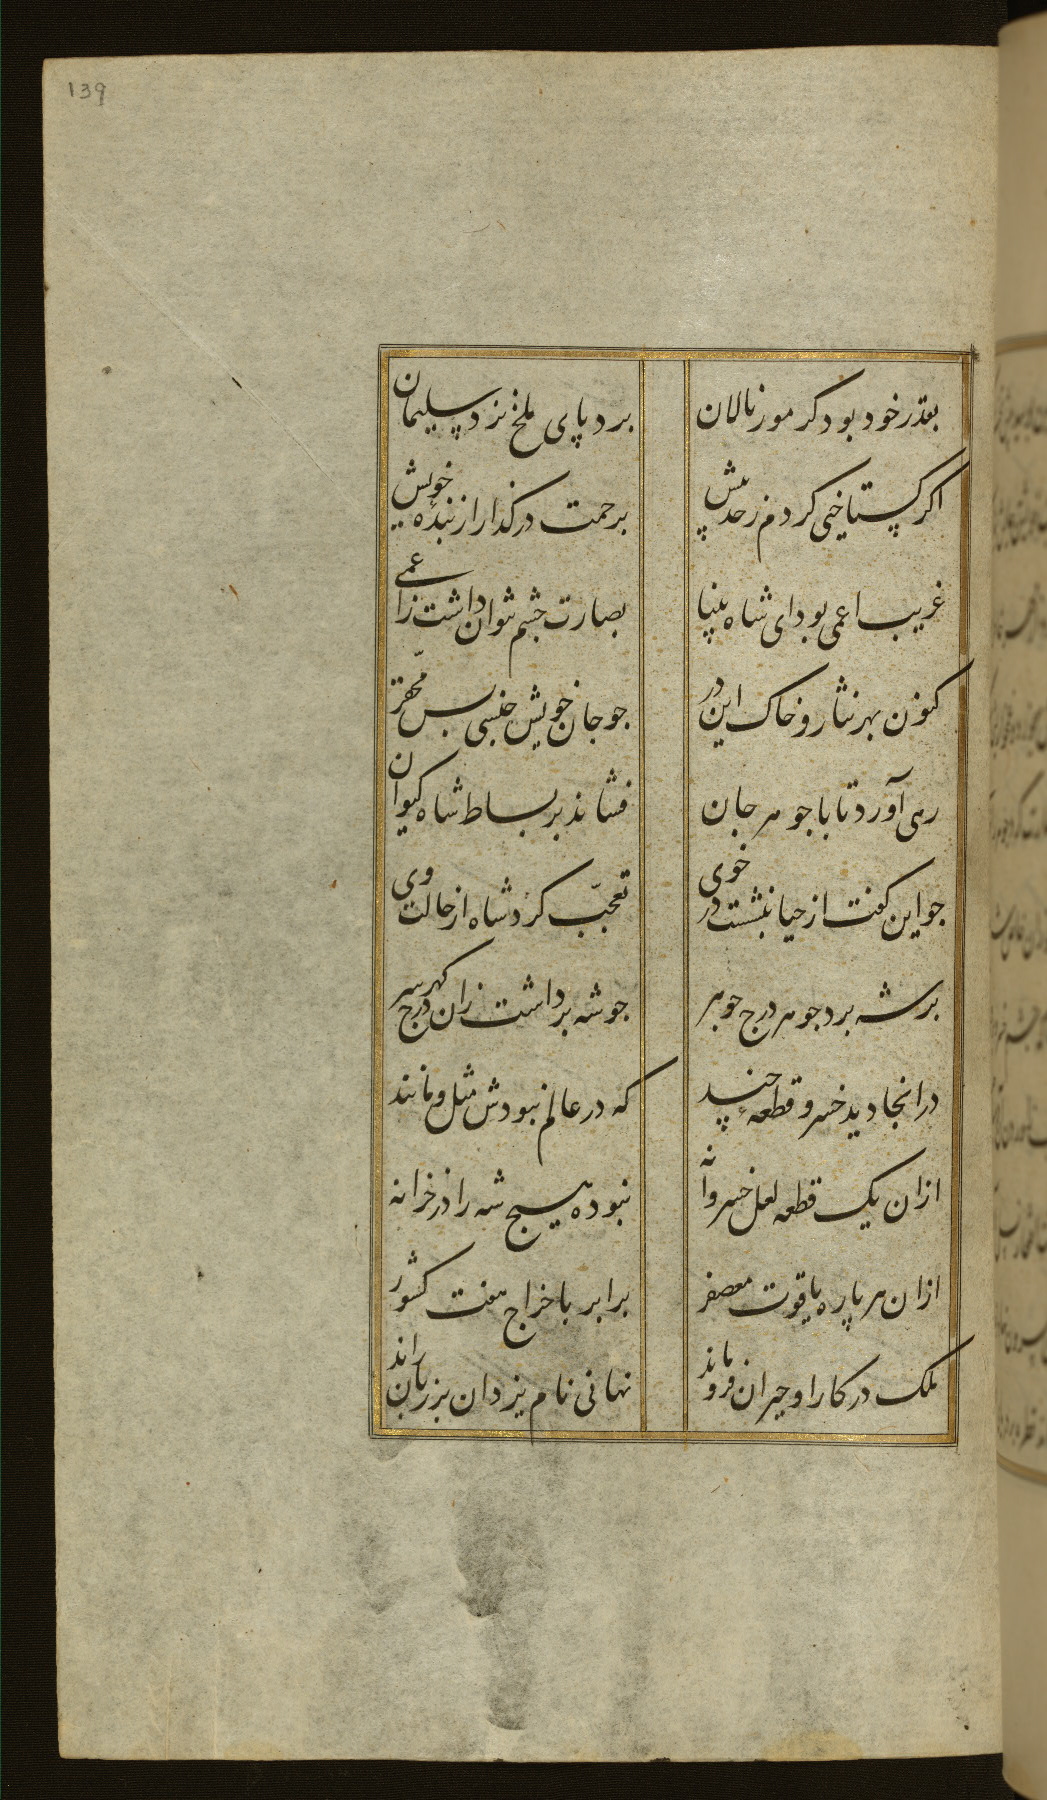 139
بقدر خود بود کر مور نالان
برد پای ملخ نزد سلیمان
اکر کستاخیی کردم ز حد پیش
برحمت درکذار از بنده خویش
غریب اعمی بود ای شاه بینا
بصارت چشم نتوان داشت ز اعمی
کنون بهر نثار و خاک این در
جو جان خویش جنسی بس محقر
رهی آورد تا با جوهر جان
فشاند بر بساط شاه کیوان
جو این کفت از حیا بنشست در خوی
تعجب کرد شاه از حالت وی
بر شه برد جوهر درج جوهر
جو شه برداشت زان درج کهر سر
در انجا دید خسرو قطعه چند
که در عالم نبودش مثل و مانند
ازان یک قطعه لعل خسروانه
نبوده هیچ شه را در خزانه
ازان هر پاره یاقوت معصفر
برابر با خراج هفت کشور
ملک در کار او حیران فروماند
نهانی نام یزدان بر زبان راند